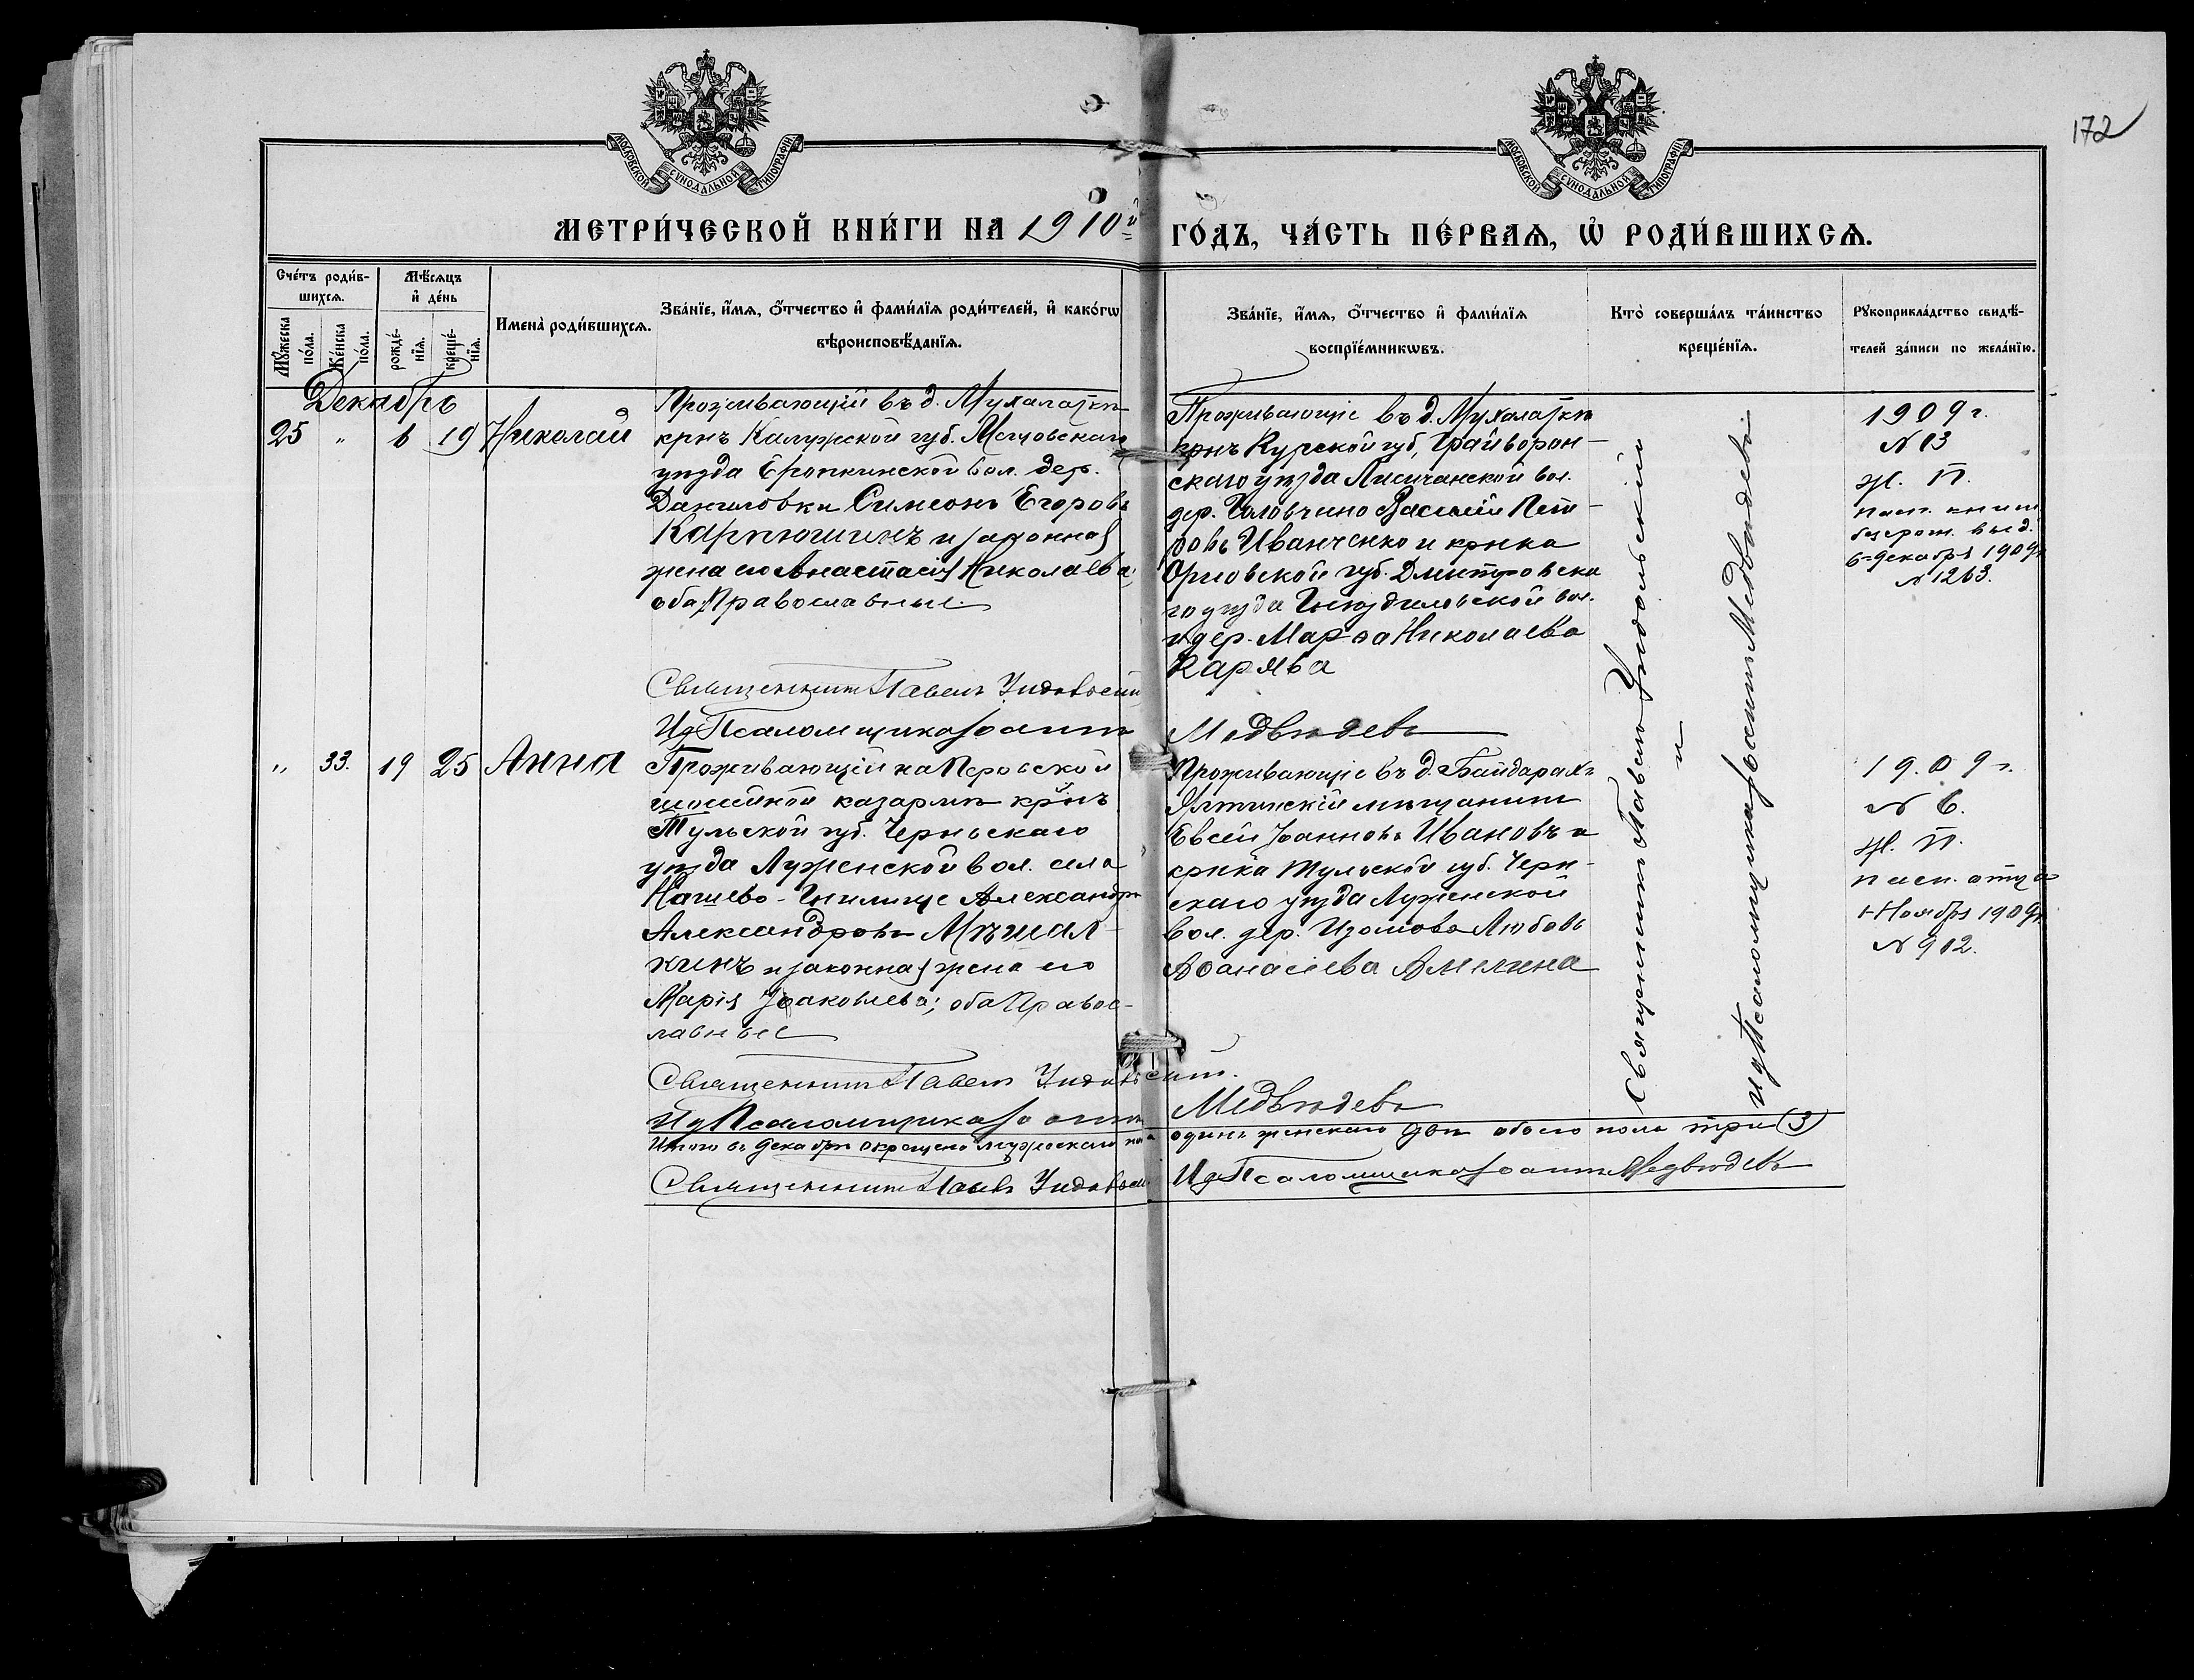 172
МОСКОВСКОЙ СУНОДАЛЬНОЙ ТИПОГРАФІИ
МОСКОВСКОЙ СУНОДАЛЬНОЙ ТИПОГРАФІИ
МЕТРИ́ЧЕСКОЙ КНИ́ГИ НА 1910й ГО́ДЪ, ЧА́СТЬ ПЕ́РВАѦ, Ѡ҆ РОДИ́ВШИХСѦ.
Сче́тъ роди́в-
шихсѧ.
Мꙋ́жеска по́ла.
Же́нска по́ла.
Мѣ́сѧцъ
и҆ де́нь
рожде́-
нїѧ.
креще́-
нїѧ.
Имена̀ роди́вшихсѧ.
Зва́нїе, и҆́мѧ, ѻ҆́тчество и҆ фами́лїѧ роди́телей, и҆ како́гѡ
вѣроисповѣ́данїѧ.
Зва́нїе, и҆́мѧ, ѻ҆́тчество и҆ фами́лїѧ
воспрїе́мникѡвъ.
Кто̀ соверша́лъ та́инство
креще́нїѧ.
Рꙋкоприкла́дство свидѣ́-
телей за́писи по жела́нїю.
Декабрь
25 " 6 19 Николай
Проживающій въ д. Мухалаткѣ
крнъ Калужской губ. Мещовскаго
уѣзда Еропкинской вол. дер.
Даниловки Симеонъ Егоровъ
Карпюшинъ и законная
жена его Анастасія Николаева,
оба Православные.
Священникъ Павелъ
Ид Псаломщика Іоаннъ
Проживающіе въ д. Мухалаткѣ
крнъ Курской губ, Грайворон-
скаго уѣзда Лисичанской вол.
дер. Головчино Василій Пет-
ровъ Иванченко и крнка
Орловской губ. Дмитровска
го уѣзда Гнѣздиловской вол.
дер. Марѳа Николаева
Карява
Медвѣдевъ
1909 г.
№ 13
Ж. П.
пасп. книж
безсроч. выд.
6 Декабря 1909 г.
№ 1263.
" 33. 19 25 Анна
Проживающій на Перовской
шоссейной казармѣ крнъ
Тульской губ. Чернскаго
уѣзда Луженской вол. села
Александръ
Александровъ Мѣшал-
кинъ и законная жена его
Марія Іаковлева; оба Правос-
лавные
Священникъ Павелъ
Ид Псаломщика Іоаннъ
Проживающіе въ д. Байдарахъ
Ялтинскій мѣщанинъ
Евсей Іоанновъ Ивановъ и
крнка Тульской губ. Черн-
скаго уѣзда Луженской
вол. дер. Любовь
Аѳанасіева Амелина
Медвѣдевъ
19.09 г.
№ 6.
Ж. П.
пасп. отца
1 Ноября 1909 г.
№ 912.
Священникъ Павелъ
и
Ид Псаломщика Іоаннъ Медвѣдевъ
Итого въ Декабрѣ окрещено мужескаго пола одинъ женскаго двѣ обоего пола три (3)
Священникъ Павелъ Ид Псаломщика Іоаннъ Медвѣдевъ